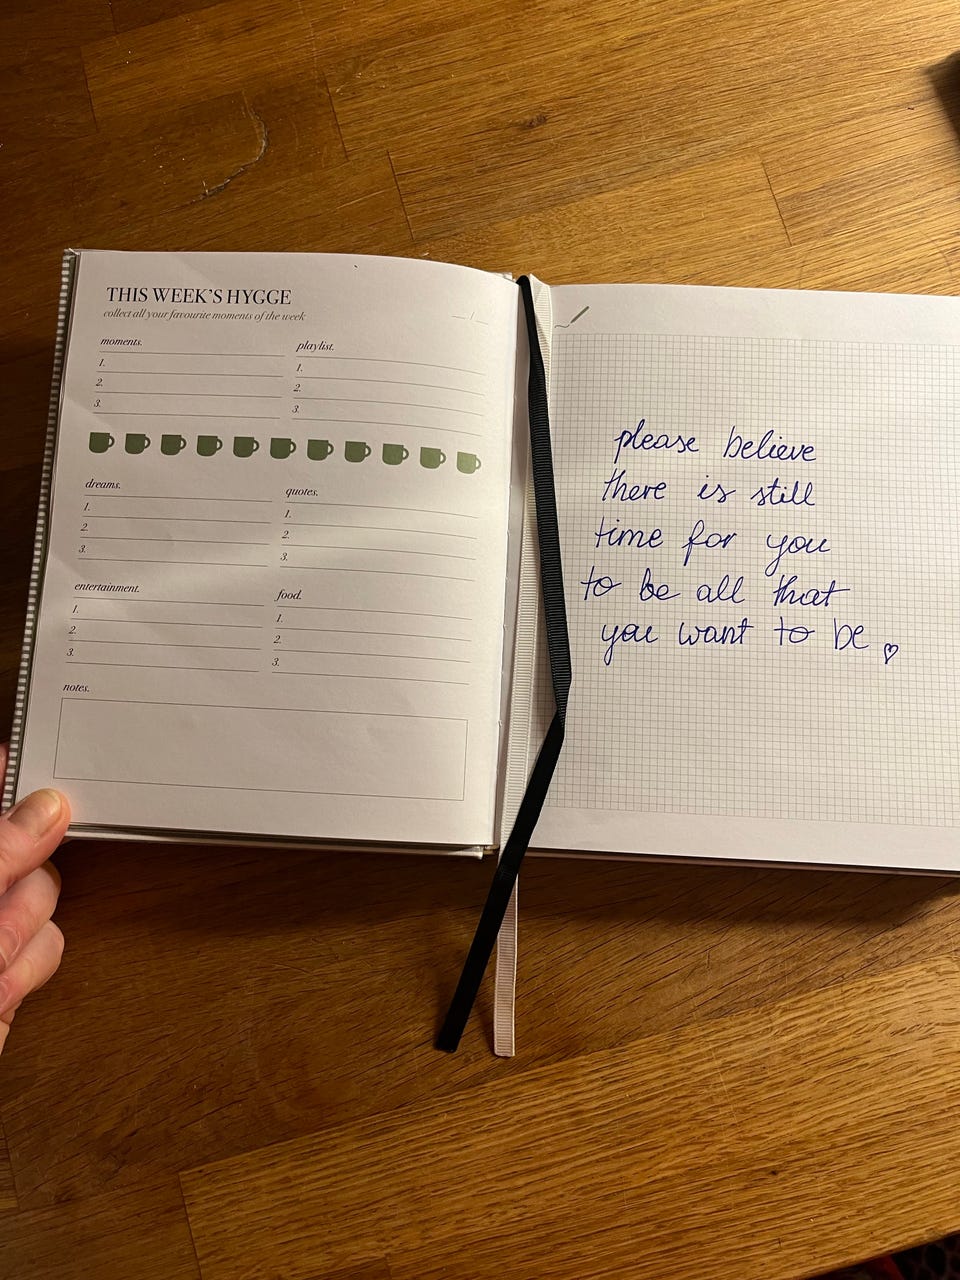 THIS WEEK'S HYGGE
collect all your favourite moments of the week
__ / __
moments.
1.
2.
3.
playlist.
1.
2.
3.
dreams.
1.
2.
3.
quotes.
1.
2.
3.
entertainment.
1.
2.
3.
food.
1.
2.
3.
notes.
please believe
there is still
time for you
to be all that
you want to be ♡